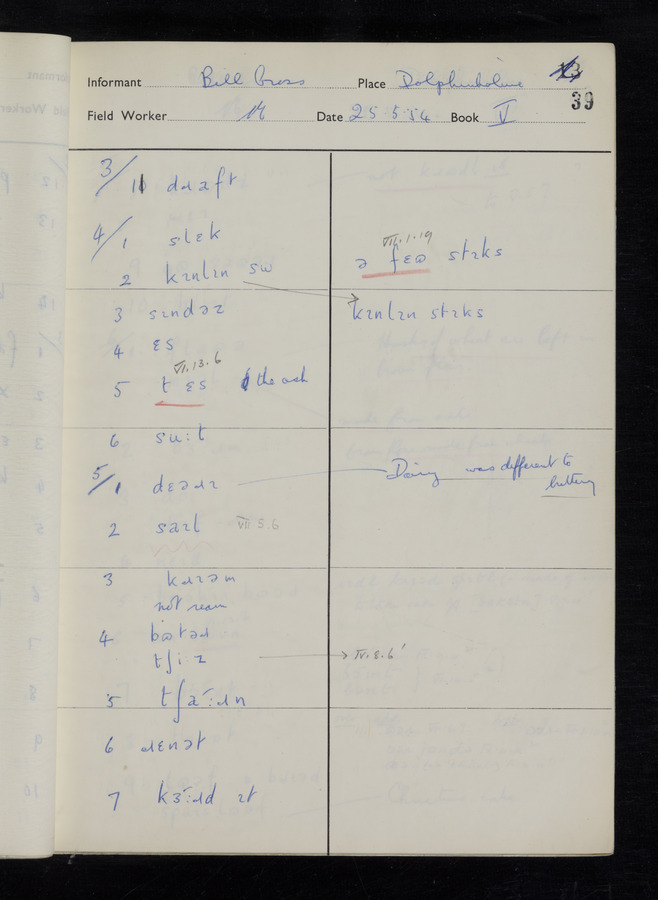 Informant Bill Cross Place Dolphinholme
39
Field Worker Date 25.5.54 Book V
3/11 dɹaft
4/1 slɛk
VII.1.19
2 kɪnlɪn ə fɛɷ stɪks
3 sɪndəz kɪnlɪn stɪks
4 ɛs
VI.13.6
5 t ɛs the ash
6 su:t
5/1 dɛəɹɪ Dairy was different to
buttery
2 saɪl VII.5.6
3 kɹɪəm
not ream
4 bɷtəɹ
tʃi:z IV.8.6
5 tʃa:ɹn
6 ɹɛnət
7 kɜ:ɹd ɪt